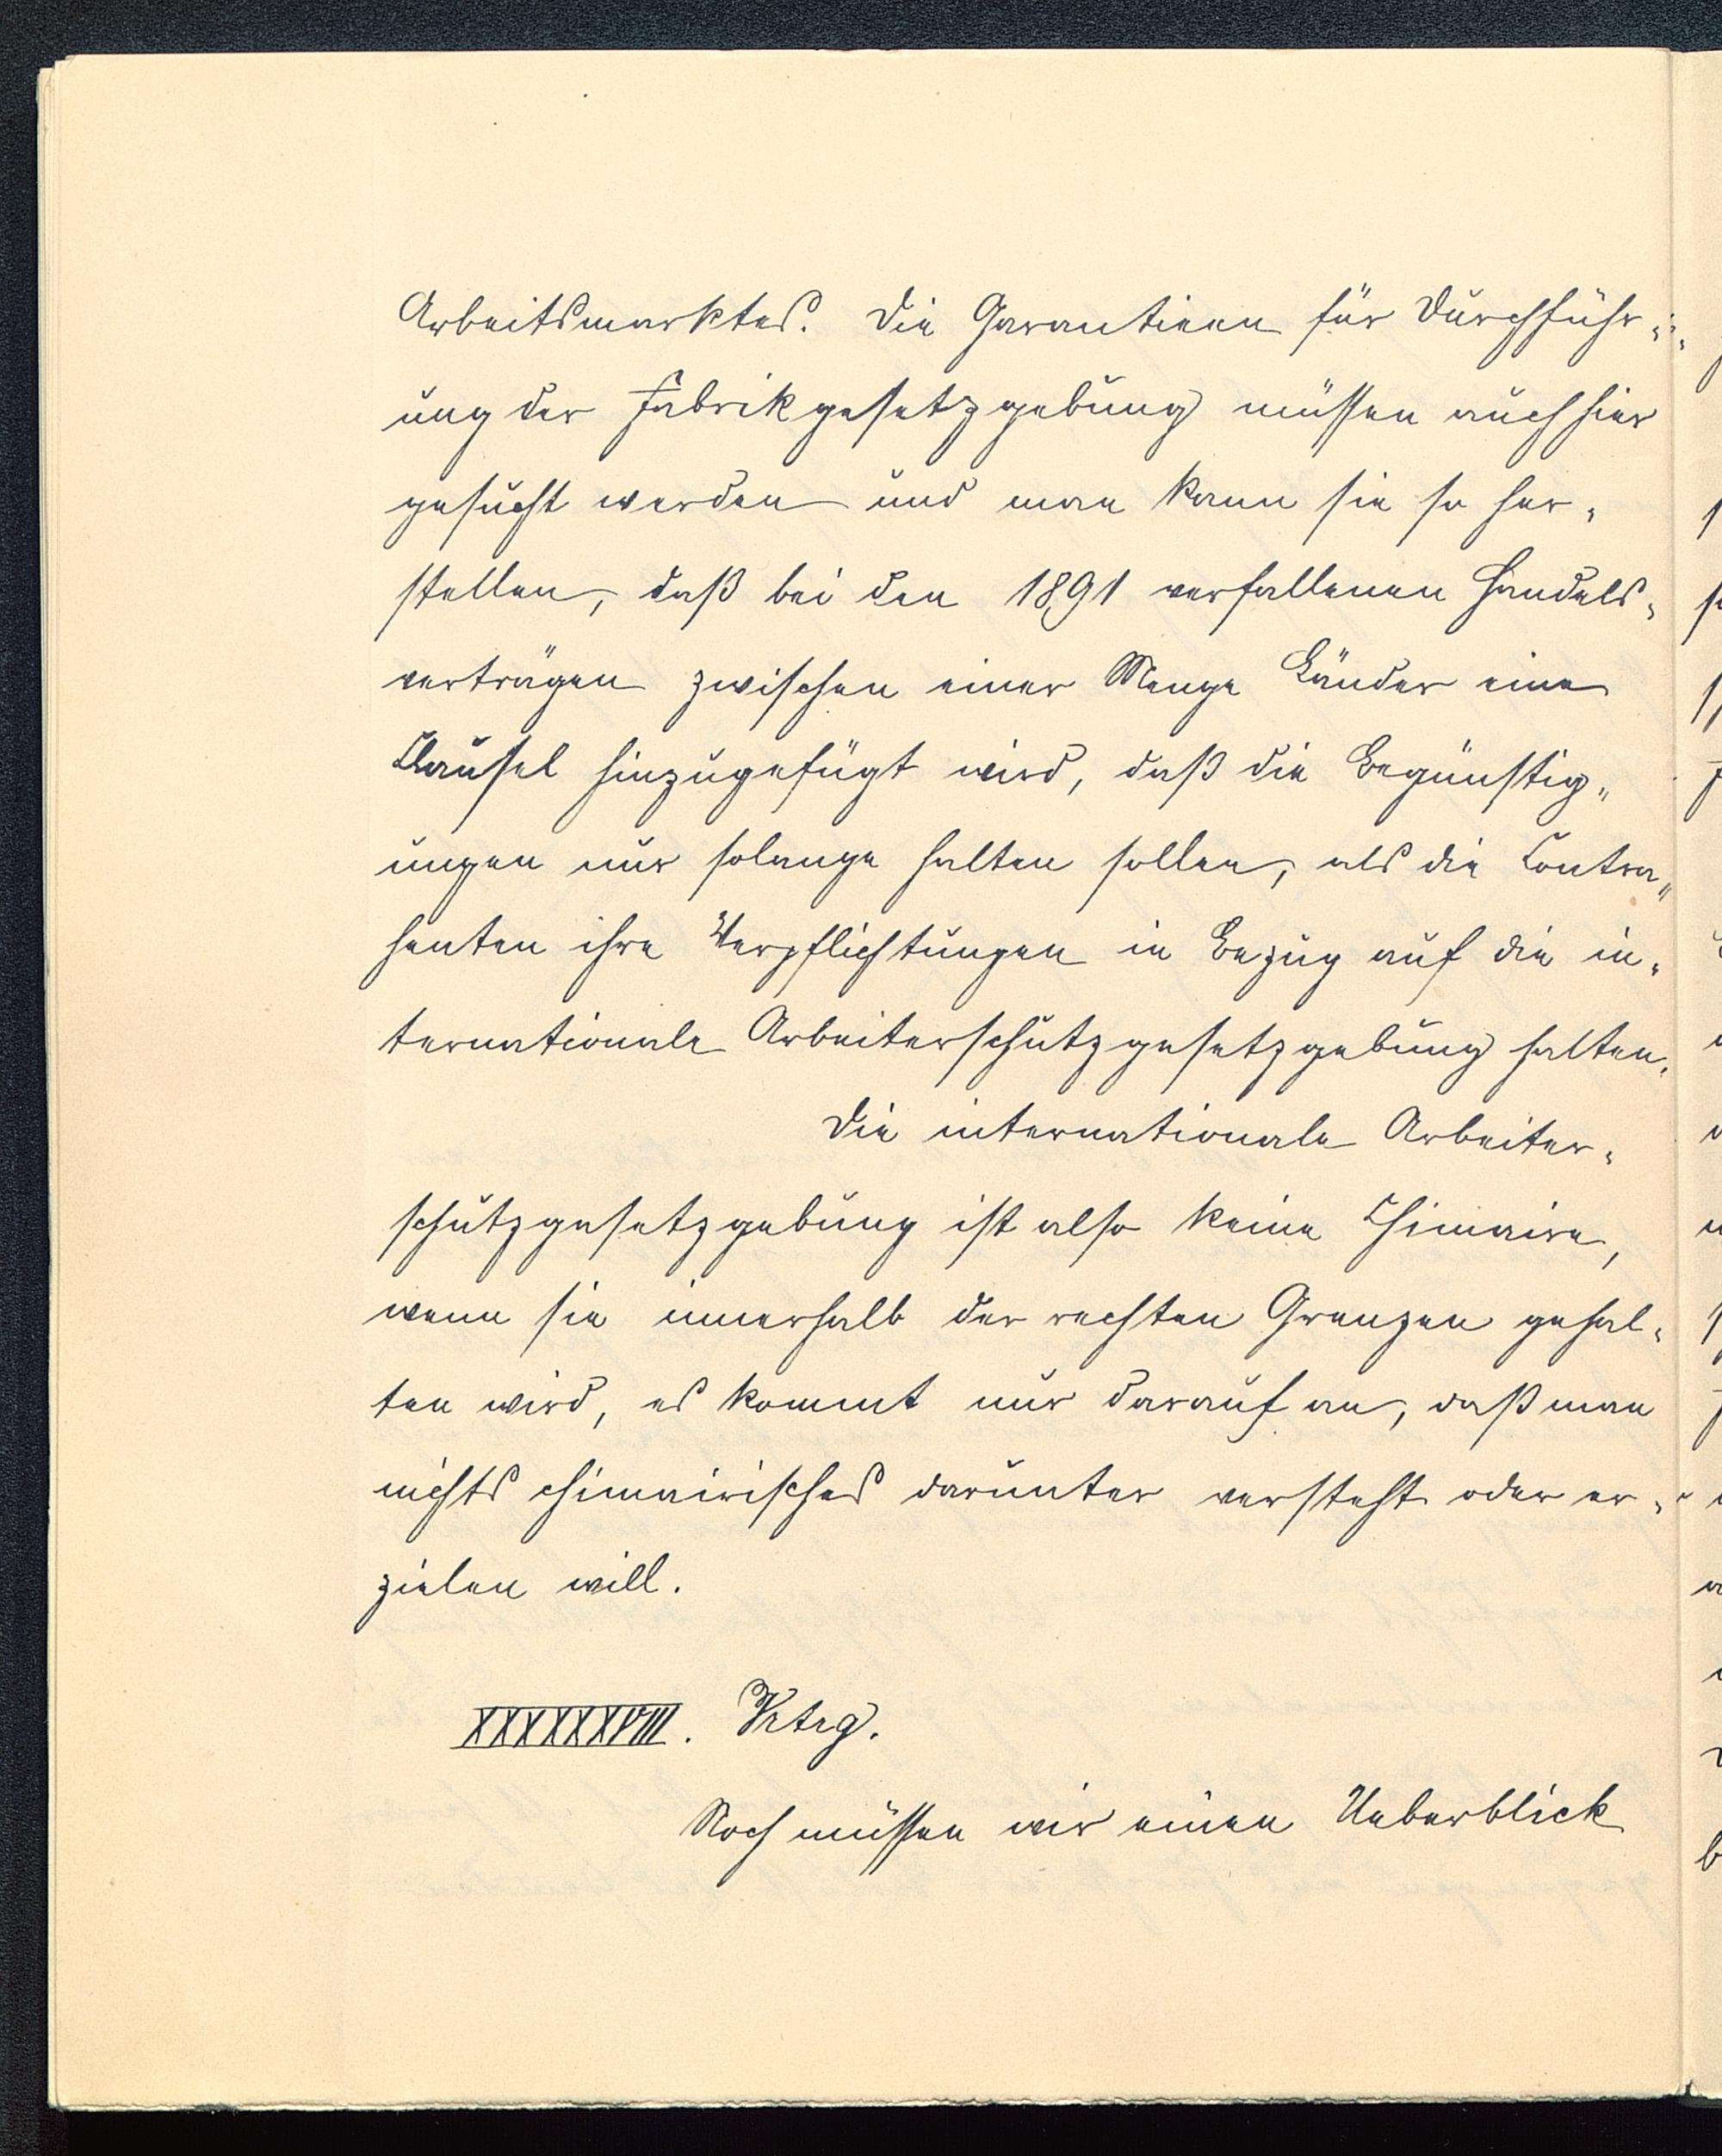 Arbeitsmarktes. Die Garantieen für Durchführ-
ung der Fabrikgesetzgebung müssen auch hier
gesucht werden und man kann sie so her-
stellen, daß bei den 1891 verfallenen Handels-
verträgen zwischen einer Menge Länder eine
Clausel hinzugefügt wird, daß die Begünstig-
ungen nur solange halten sollen, als die Contra-
henten ihre Verpflichtungen in Bezug auf die in-
ternationale Arbeiterschutzgesetzgebung halten.
Die internationale Arbeiter-
schutzgesetzgebung ist also keine Chimaire,
wenn sie innerhalb der rechten Grenzen gehal-
ten wird, es kommt nur darauf an, daß man
nichts chimairisches darunter versteht oder er-
zielen will.
XXXXXXVIII. Vrtrg.
Noch müssen wir einen Ueberblick